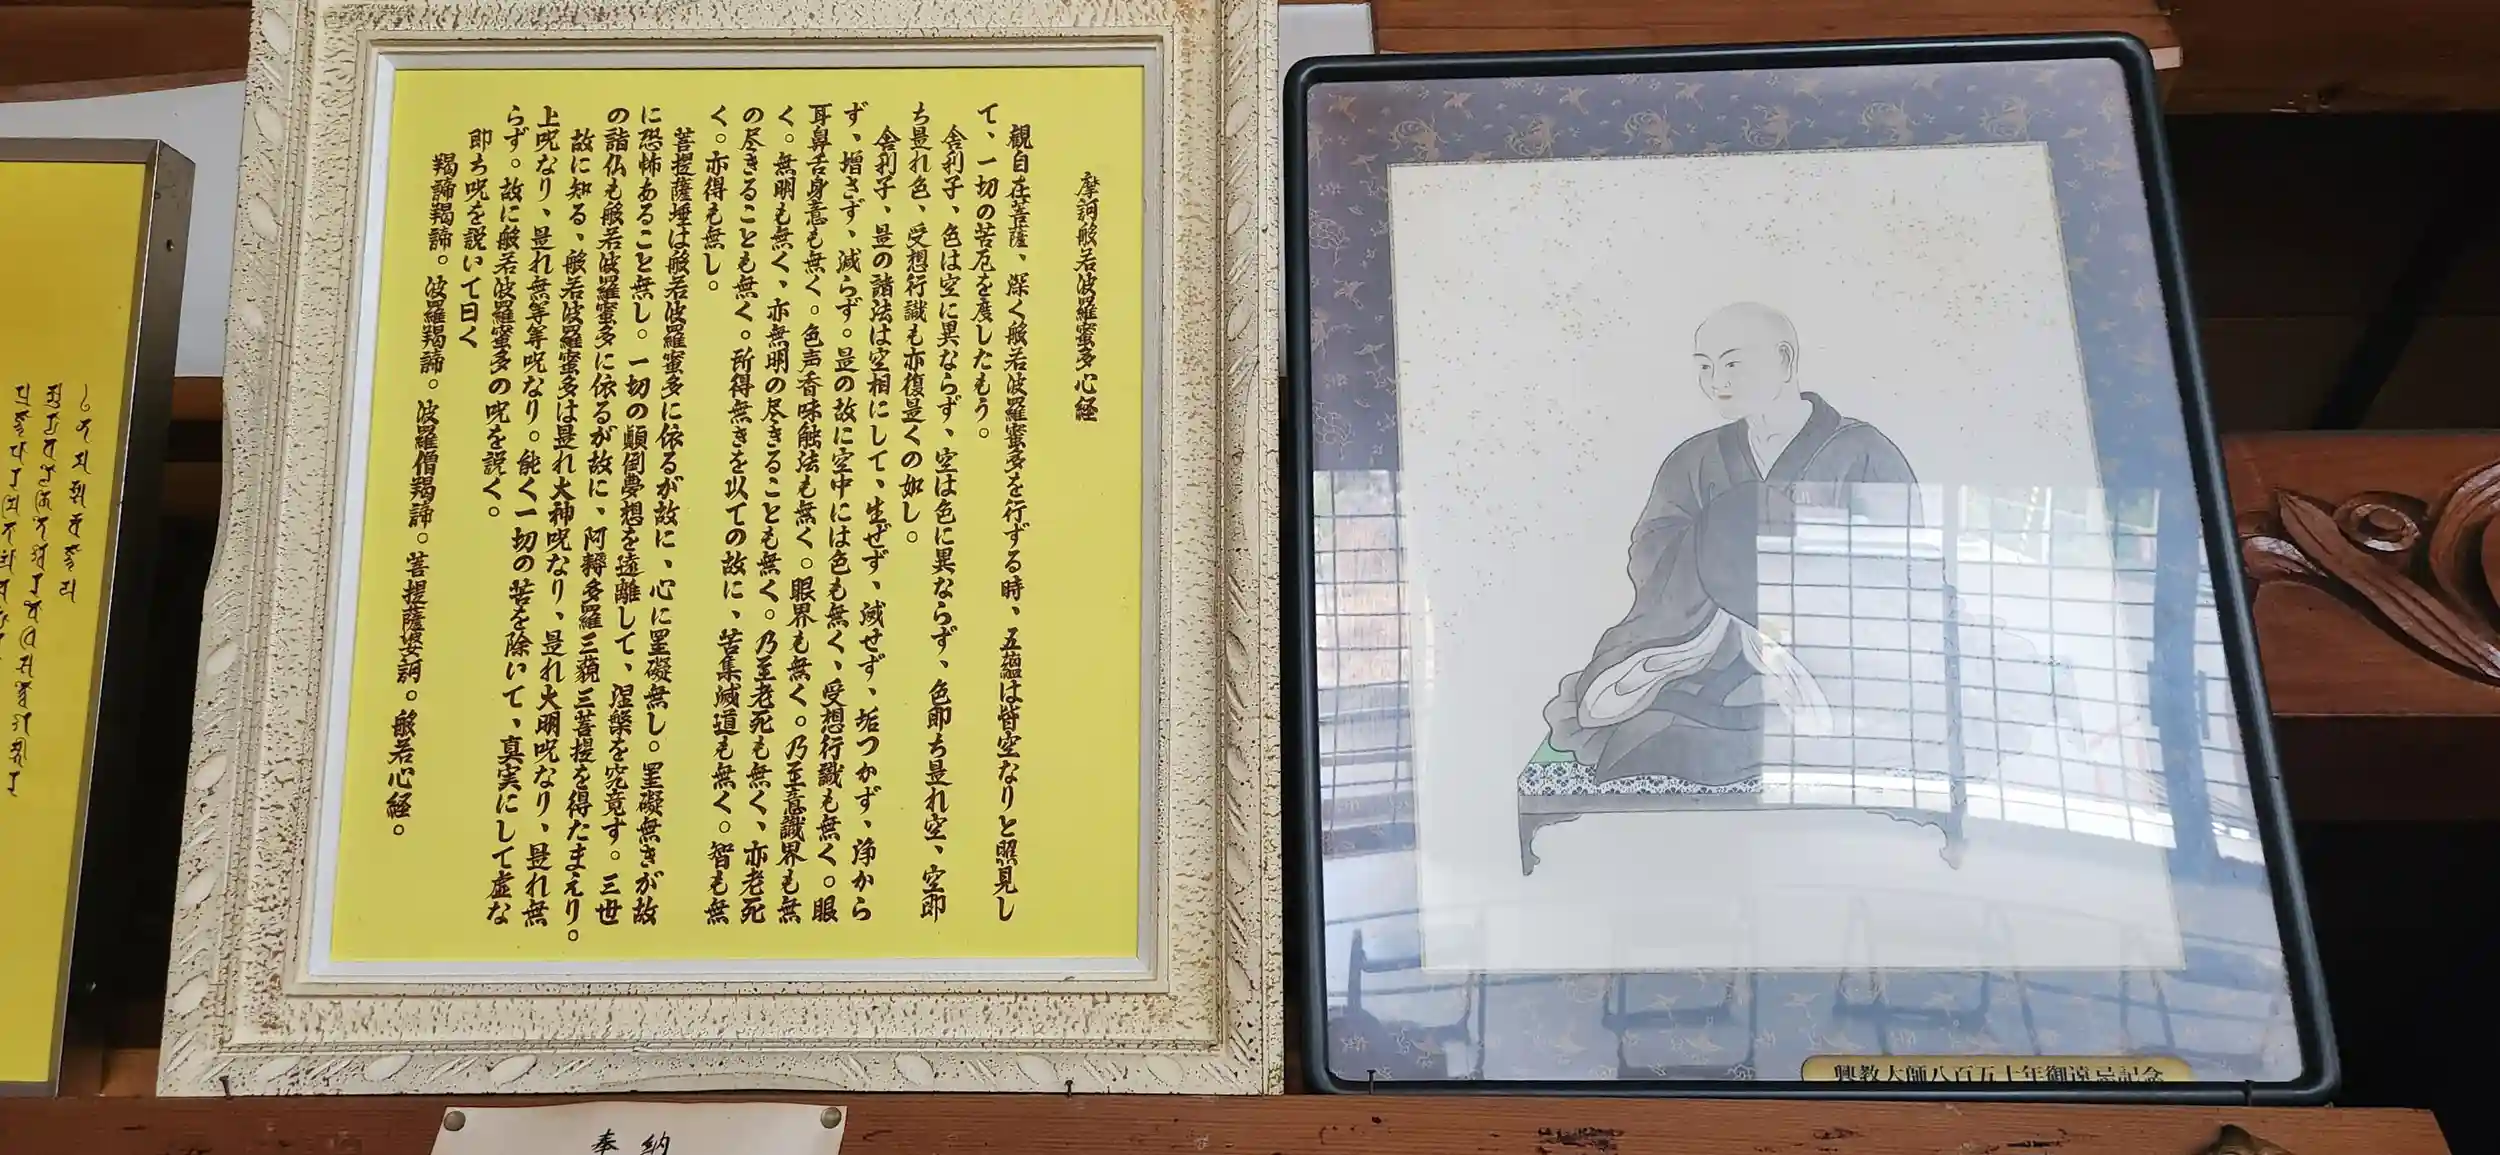 摩訶般若波羅蜜多心経
観自在菩薩、深く般若波羅蜜多を行ずる時、五蘊は皆空なりと照見し
て、一切の苦厄を度したもう。
舎利子、色は空に異ならず、空は色に異ならず、色即ち是れ空、空即
ち是れ色、受想行識も亦復是くの如し。
舎利子、是の諸法は空相にして、生ぜず、滅せず、垢つかず、浄から
ず、増さず、減らず。是の故に空中には色も無く、受想行識も無く。眼
耳鼻舌身意も無く。色声香味触法も無く。眼界も無く。乃至意識界も無
く。無明も無く、亦無明の尽きることも無く。乃至老死も無く、亦老死
の尽きることも無く。苦集滅道も無く。智も無
く。亦得も無し。所得無きを以ての故に、
菩提薩埵は般若波羅蜜多に依るが故に、心に罣礙無し。罣礙無きが故
に恐怖あること無し。一切の顛倒夢想を遠離して、涅槃を究竟す。三世
の諸仏も般若波羅蜜多に依るが故に、阿耨多羅三藐三菩提を得たまえり。
故に知る、般若波羅蜜多は是れ大神呪なり、是れ大明呪なり、是れ無
上呪なり、是れ無等等呪なり。能く一切の苦を除いて、真実にして虚な
らず。故に般若波羅蜜多の呪を説く。
即ち呪を説いて曰く
羯諦羯諦。波羅羯諦。波羅僧羯諦。菩提薩婆訶。般若心経。
興教大師八百五十年御遠忌記念
奉納